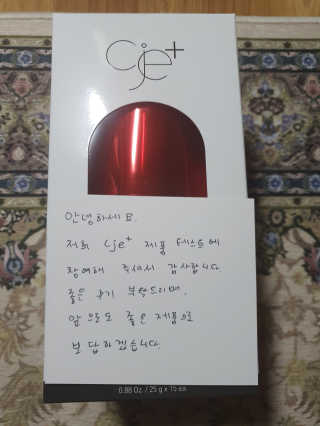 cje+
안녕하세요.
저희 cje+ 제품 테스트에
참여해 주셔서 감사합니다
좋은 후기 부탁드리며,
앞으로도 좋은 제품으로
보답하겠습니다
0.88 Oz / 25 g x 15 ea